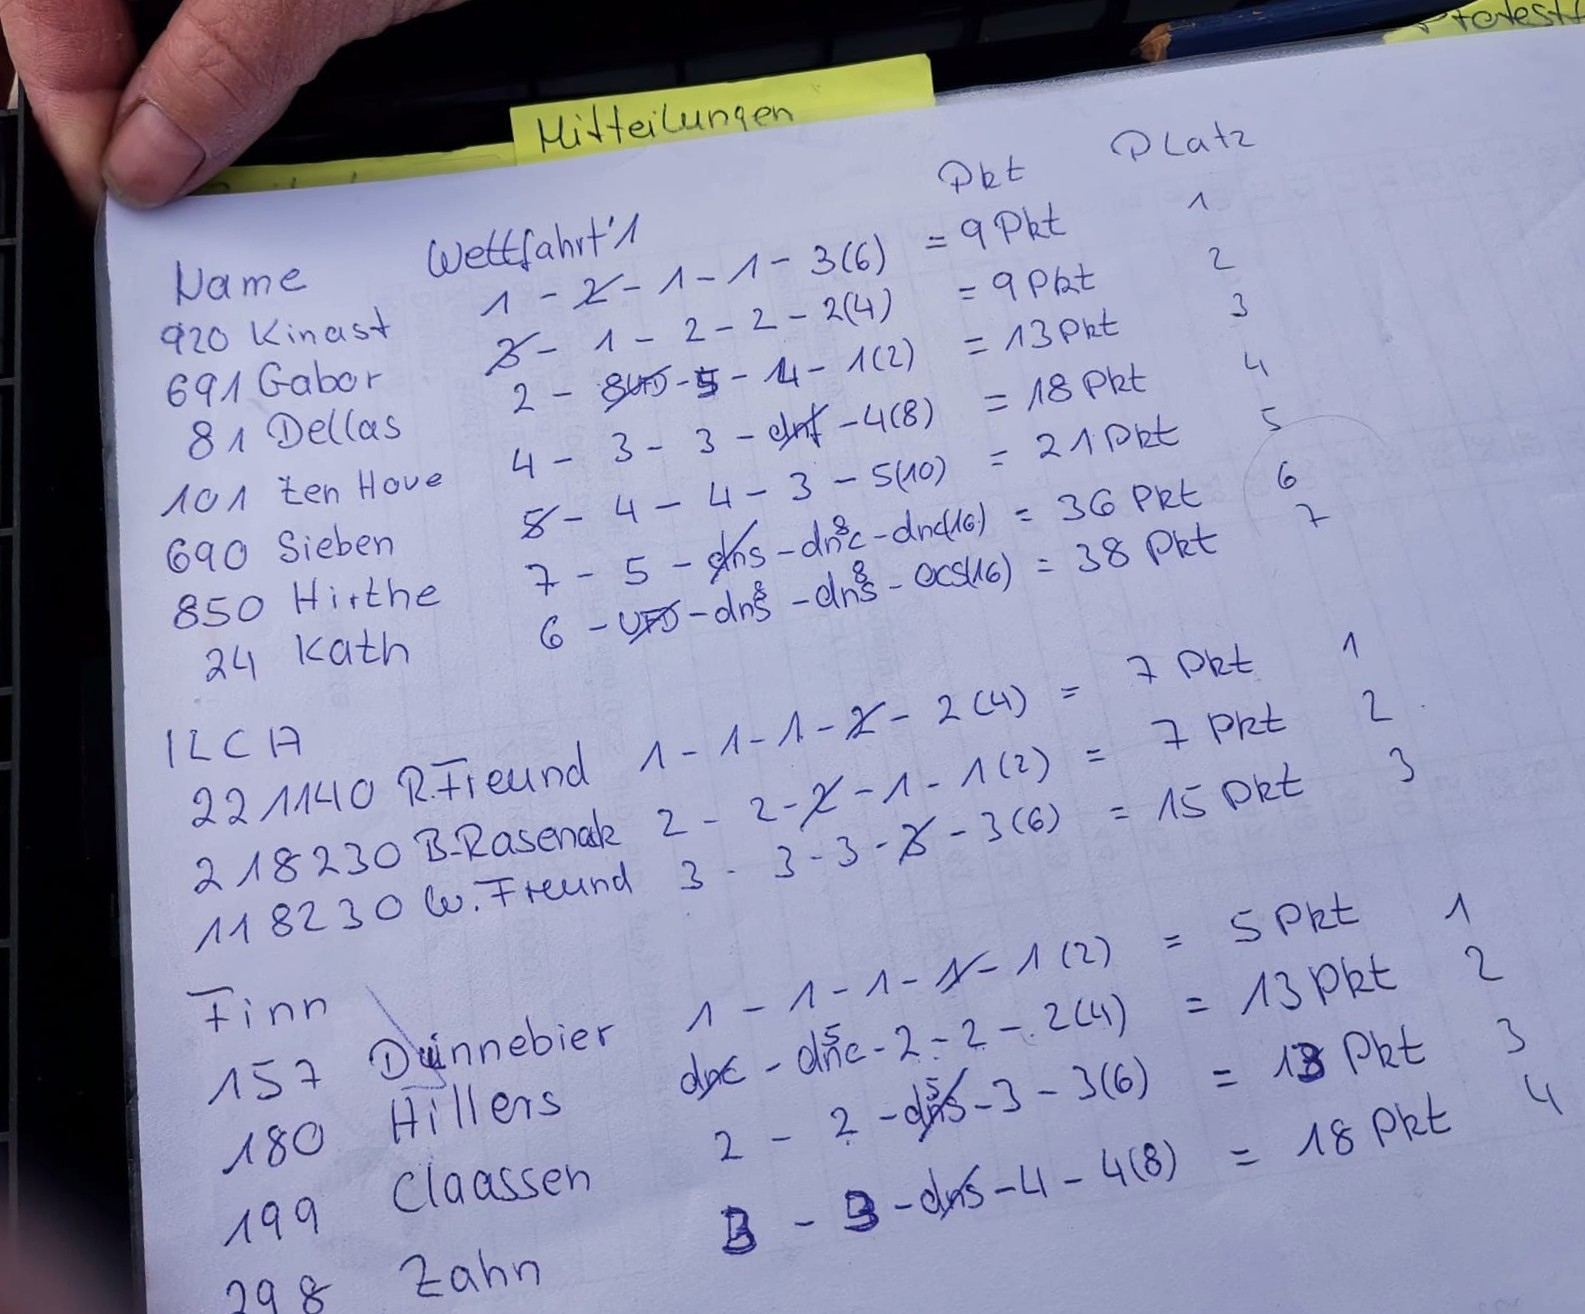 Mitteilungen
Name Wettfahrt'1 Pkt Platz
920 Kinast 1 - 2 - 1 - 1 - 3(6) = 9 Pkt 1
691 Gabor 3 - 1 - 2 - 2 - 2(4) = 9 Pkt 2
81 Dellas 2 - - 5 - 4 - 1(2) = 13 Pkt 3
101 ten Hove 4 - 3 - 3 - dnf - 4(8) = 18 Pkt 4
690 Sieben 5 - 4 - 4 - 3 - 5(10) = 21 Pkt 5
850 Hirthe 7 - 5 - dns - dnc 8 - dnc(16) = 36 Pkt 6
24 Kath 6 - UFD - dns 8 - dns 8 - OCS(16) = 38 Pkt 7
ILCA
221140 R.Freund 1 - 1 - 1 - 2 - 2(4) = 7 Pkt 1
218230 B.Rasenack 2 - 2 - 2 - 1 - 1(2) = 7 Pkt 2
118230 W.Freund 3 - 3 - 3 - 3 - 3(6) = 15 Pkt 3
Finn
157 Dünnebier 1 - 1 - 1 - 1 - 1(2) = 5 Pkt 1
180 Hillers dnc - dnc 5 - 2 - 2 - 2(4) = 13 Pkt 2
199 Claassen 2 - 2 - dns 5 - 3 - 3(6) = 13 Pkt 3
298 Zahn 3 - 3 - dns - 4 - 4(8) = 18 Pkt 4